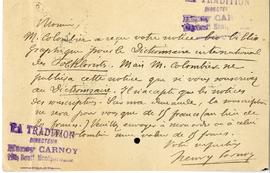 Monsieur,
M. Colombier a reçu votre notice bio-biblio-
graphique pour le Dictionnaire international
des Folkloristes. Mais M. Colombier ne
publiera cette notice que si vous souscrivez
au Dictionnaire. Il n'accepte que les notices
des souscripteurs. Sur ma demande, la souscription
ne sera pour vous que de 15 francs (au lieu de
francs.) Veuillez envoyer à moi ou à celui
Colombier une valeur de 15 francs.
Votre
Henry Carnoy
LA TRADITION
DIRECTEUR
Henry CARNOY
LA TRADITION
DIRECTEUR
Henry CARNOY